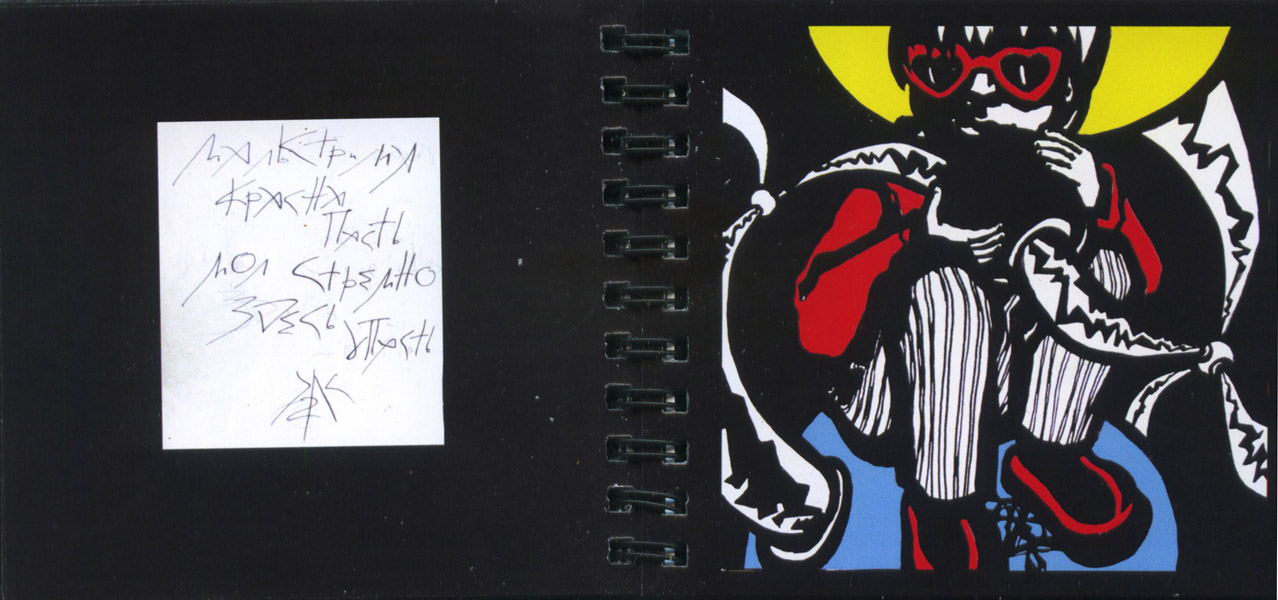 мальстрима
красна
Пасть
мол стремно
здесь
упасть